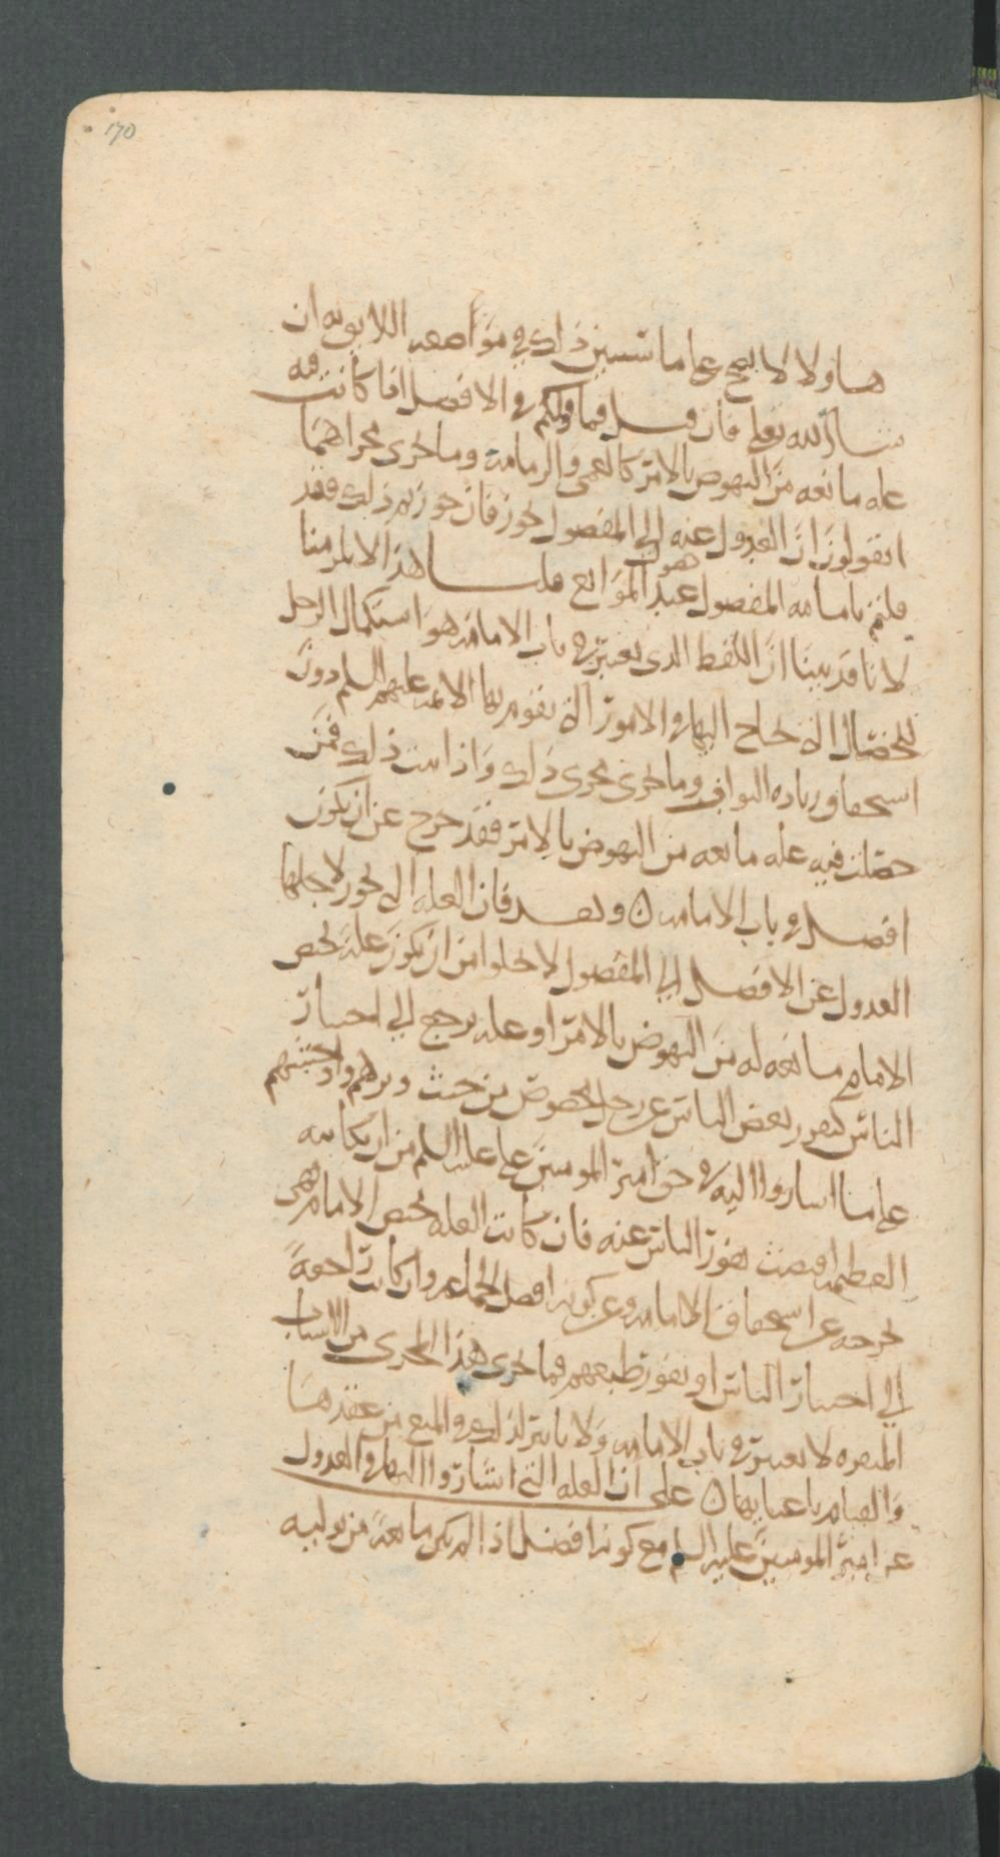 170
هاولا لا يصح على ما سنبين ذلك في مواضعه اللايق به ان
شا الله تعلى فان قيل فما قولكم في الافضل اذا كانت فيه
عله مانعه من النهوض بالامر كالعمى والزمانه وما جرى مجراهما
اتقولون ان العدول عنه الى المفضول يجوز فان جوزتم ذلك فقد
قلتم بامامه المفضول عند الموانع قلنا هذا لا يلزمنا
لانا قد بينا ان الفضل الذي يعتبر في باب الامامه هو استكمال الرجل
للخصال التي يحتاج اليها في الامور التي يقوم بها الايمه عليهم السلم دون
استحقاق زياده الثواب وما جرى مجرى ذلك واذا ثبت ذلك فمن
حصلت فيه عله مانعه من النهوض بالامر فقد خرج عن ان يكون
افضل في باب الامامه ن وبعد فان العله التي يجوز لاجلها
العدول عن الافضل الى المفضول لا يخلوا من ان يكون عله تخص
الامام مانعه له من النهوض بالامر او عله يرجع الى اختيار
الناس كنفور بعض الناس عن رجل مخصوص من حيث وترهم واوحشهم
على ما اشاروا اليه في حق امير المومنين على عليه السلم من ان نكايته
العظيمه اقتضت نفور الناس عنه فان كانت العله تخص الامام فهي
تخرجه عن استحقاق الامامه وعن كونه افضل الجماعه وان كانت راجعة
الى اختيار الناس او نفور طبعهم فما جرى هذا المجرى من الاسباب
المنفره لا يعتبر في باب الامامه ولا تاثير لذلك في المنع من عقدها
والقيام باعبايها ن على ان العله التي اشاروا اليها في العدول
عن امير المومنين عليه السلم مع كونه افضل اذا لم يكن مانعة من توليه